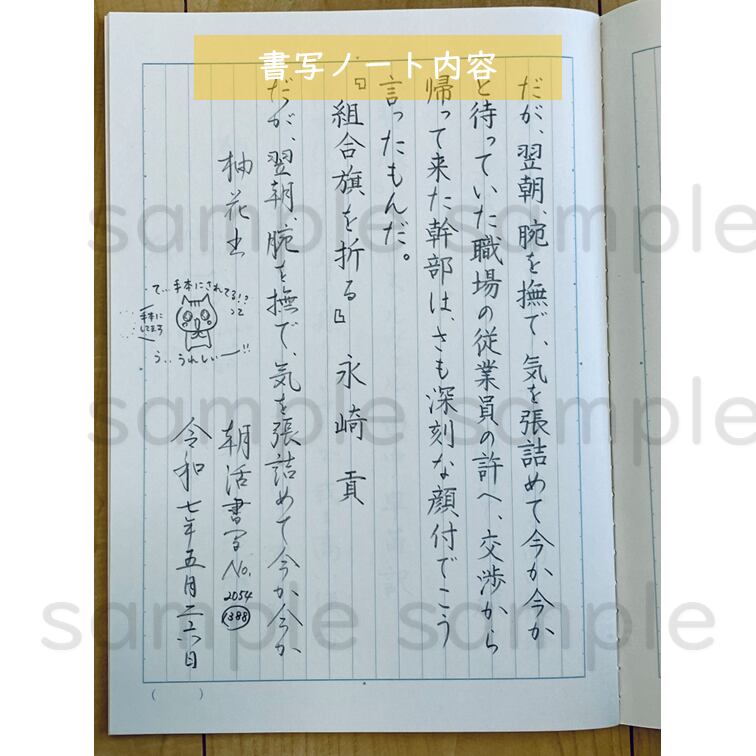 書写ノート内容
だが、翌朝、腕を撫で、気を張詰めて今か今か
と待っていた職場の従業員の許へ、交渉から
帰って来た幹部は、さも深刻な顔付でこう
言ったもんだ。
『組合旗を折る』 永崎 貢
だが、翌朝、腕を撫で、気を張詰めて今か今か
柚花
て‥手本にされてる!?
って
手本に
してまろ
う‥うれしいー!!
朝活書写No.
2054
1388
令和七年五月二六日
sample sample
sample sample
sample sample